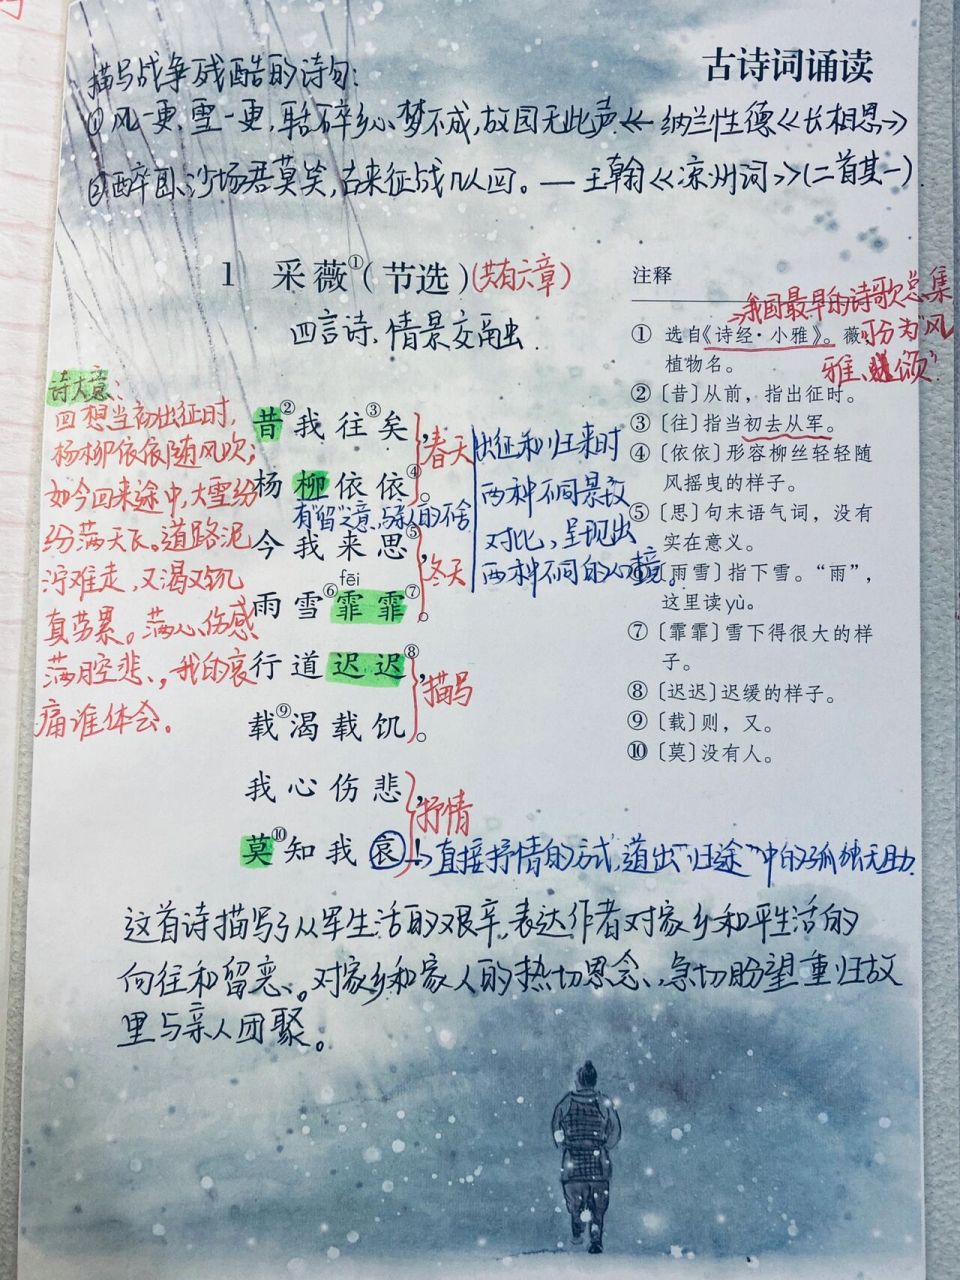 描写战争残酷的诗句:
①风一更,雪一更,聒碎乡心梦不成,故园无此声.<<纳兰性德<<长相思>>
②醉卧沙场君莫笑,古来征战几人回。—王翰<<凉州词>>(二首其一)
古诗词诵读
1 采薇①(节选)(共有六章)
四言诗.情景交融.
诗大意:
回想当初出征时,
杨柳依依随风吹;
如今回来途中,大雪纷
纷满天飞。道路泥
泞难走,又渴又饥
真劳累。满心伤感
满腔悲,我的哀
痛谁体会。
昔②我往③矣,
杨柳依依④。
有"留"之意,与亲人的不舍
今我来思⑤,
fēi
雨雪⑥霏霏⑦。
行道迟迟⑧,
载⑨渴载饥。
我心伤悲,
莫⑩知我哀!
春天
冬天
描写
抒情
出征和归来时
两种不同景致
对比,呈现出
两种不同的心境。
→直接抒情的方式,道出"归途"中的孤独无助.
注释
→我国最早的诗歌总集
可分为"风
雅、颂"
① 选自《诗经·小雅》。薇,
植物名。
②〔昔〕从前,指出征时。
③〔往〕指当初去从军。
④〔依依〕形容柳丝轻轻随
风摇曳的样子。
⑤〔思〕句末语气词,没有
实在意义。
⑥〔雨雪〕指下雪。“雨”,
这里读yù。
⑦〔霏霏〕雪下得很大的样
子。
⑧〔迟迟〕迟缓的样子。
⑨〔载〕则,又。
⑩〔莫〕没有人。
这首诗描写了从军生活的艰辛,表达作者对家乡和平生活的
向往和留恋、。对家乡和家人的热切思念、,急切盼望重归故
里与亲人团聚。